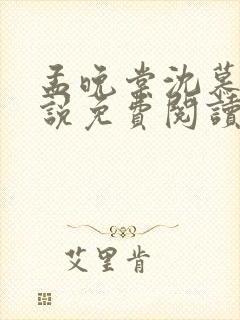 孟晚棠沈慕
說免費閱讀
艾里肯